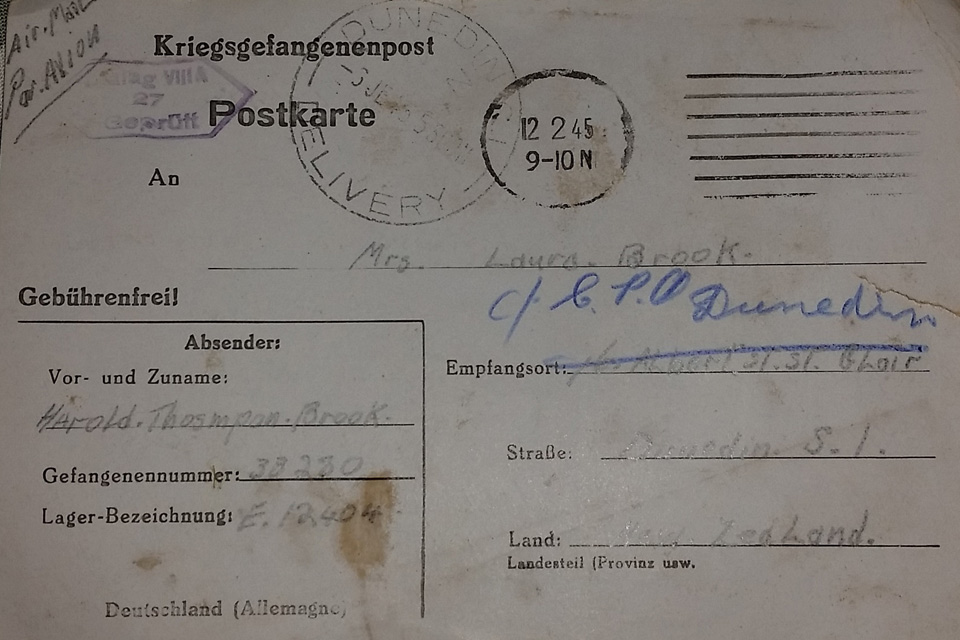 Air-Mail
Par Avion
Kriegsgefangenenpost
DUNEDIN N.Z.
Stalag VIIIA
27
Geprüft
Postkarte
12 2 45
9-10 N
DELIVERY
An
Mrs. Laura. Brook.
Gebührenfrei!
c/ C.P.O Dunedin
Absender:
Empfangsort: Albert St. St. Clair
Vor- und Zuname:
Harold. Thosmpon. Brook.
Straße: Dunedin S.I.
Gefangenennummer: 38280
Lager-Bezeichnung: E.12404
Land: New Zealand.
Landesteil (Provinz usw.
Deutschland (Allemagne)